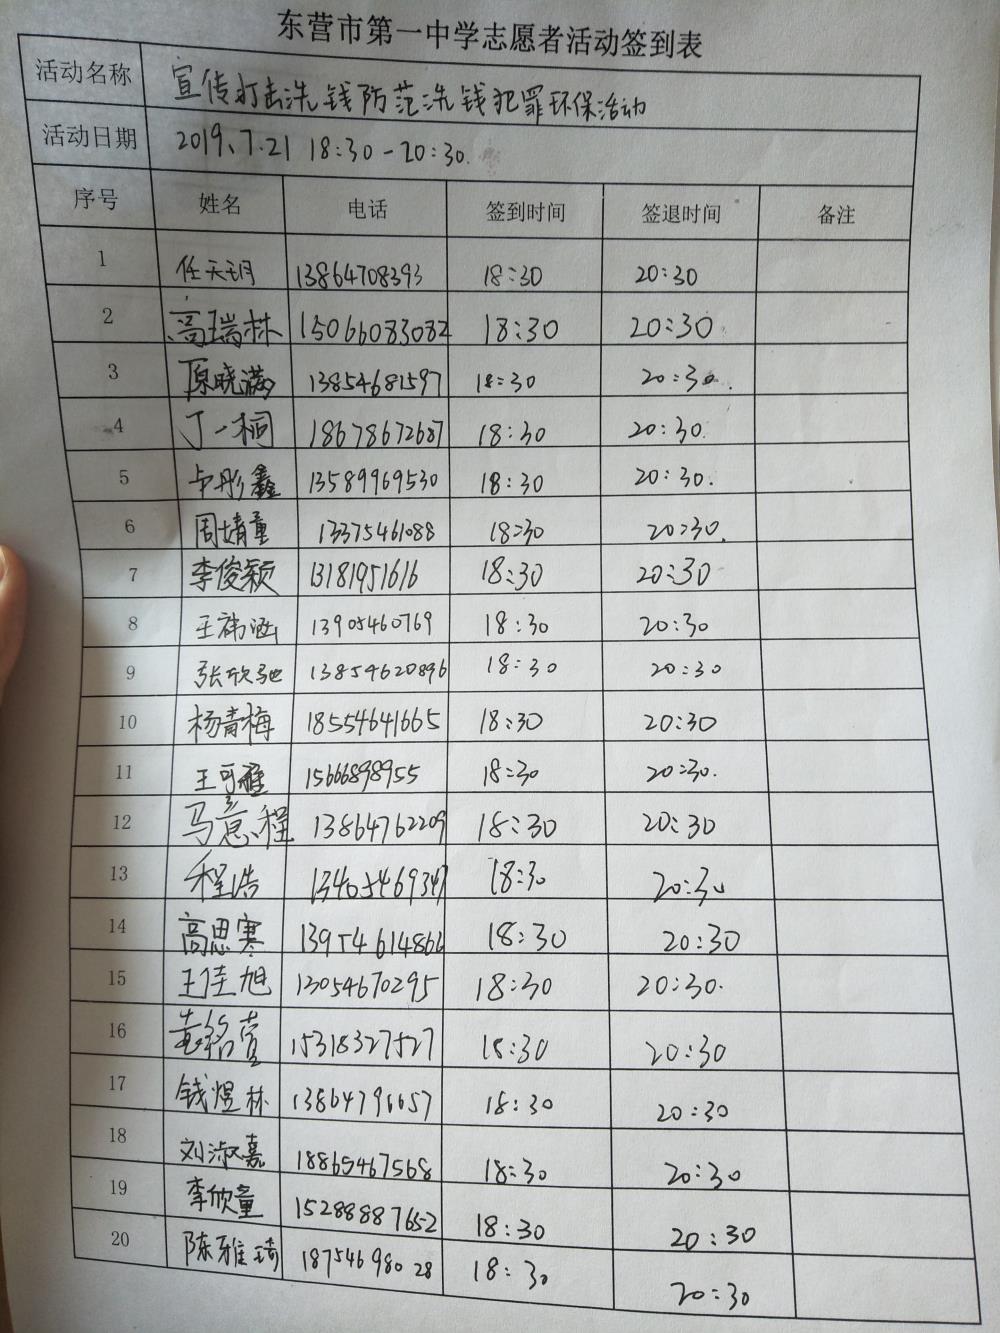 东营市第一中学志愿者活动签到表
活动名称 宣传打击洗钱防范洗钱犯罪环保活动
活动日期 2019.7.21 18:30-20:30.
序号 姓名 电话 签到时间 签退时间 备注
1 任天玥 13864708393 18:30 20:30
2 高瑞林 15066083082 18:30 20:30
3 原晓满 13854681597 18:30 20:30.
4 丁一桐 18678672687 18:30 20:30.
5 卢彤鑫 13589969530 18:30 20:30.
6 周婧童 13375461088 18:30 20:30.
7 李俊颖 13181951616 18:30 20:30
8 王祎涵 13905460769 18:30 20:30
9 张欣驰 13854620896 18:30 20:30
10 杨青梅 18554641665 18:30 20:30
11 王可雅 15666898955 18:30 20:30.
12 马意程 13864762209 18:30 20:30
13 程浩 13405469347 18:30 20:30
14 高思寒 13954614866 18:30 20:30
15 王佳旭 13054670295 18:30 20:30.
16 铭萱 15318327527 18:30 20:30
17 钱煜林 13864796657 18:30 20:30
18 刘淑嘉 18865467568 18:30 20:30
19 李欣童 15288887652 18:30 20:30
20 陈雅琦 18754698028 18:30 20:30